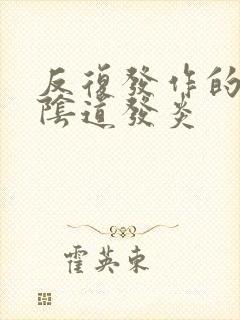 反復發作的
陰道發炎
霍英東